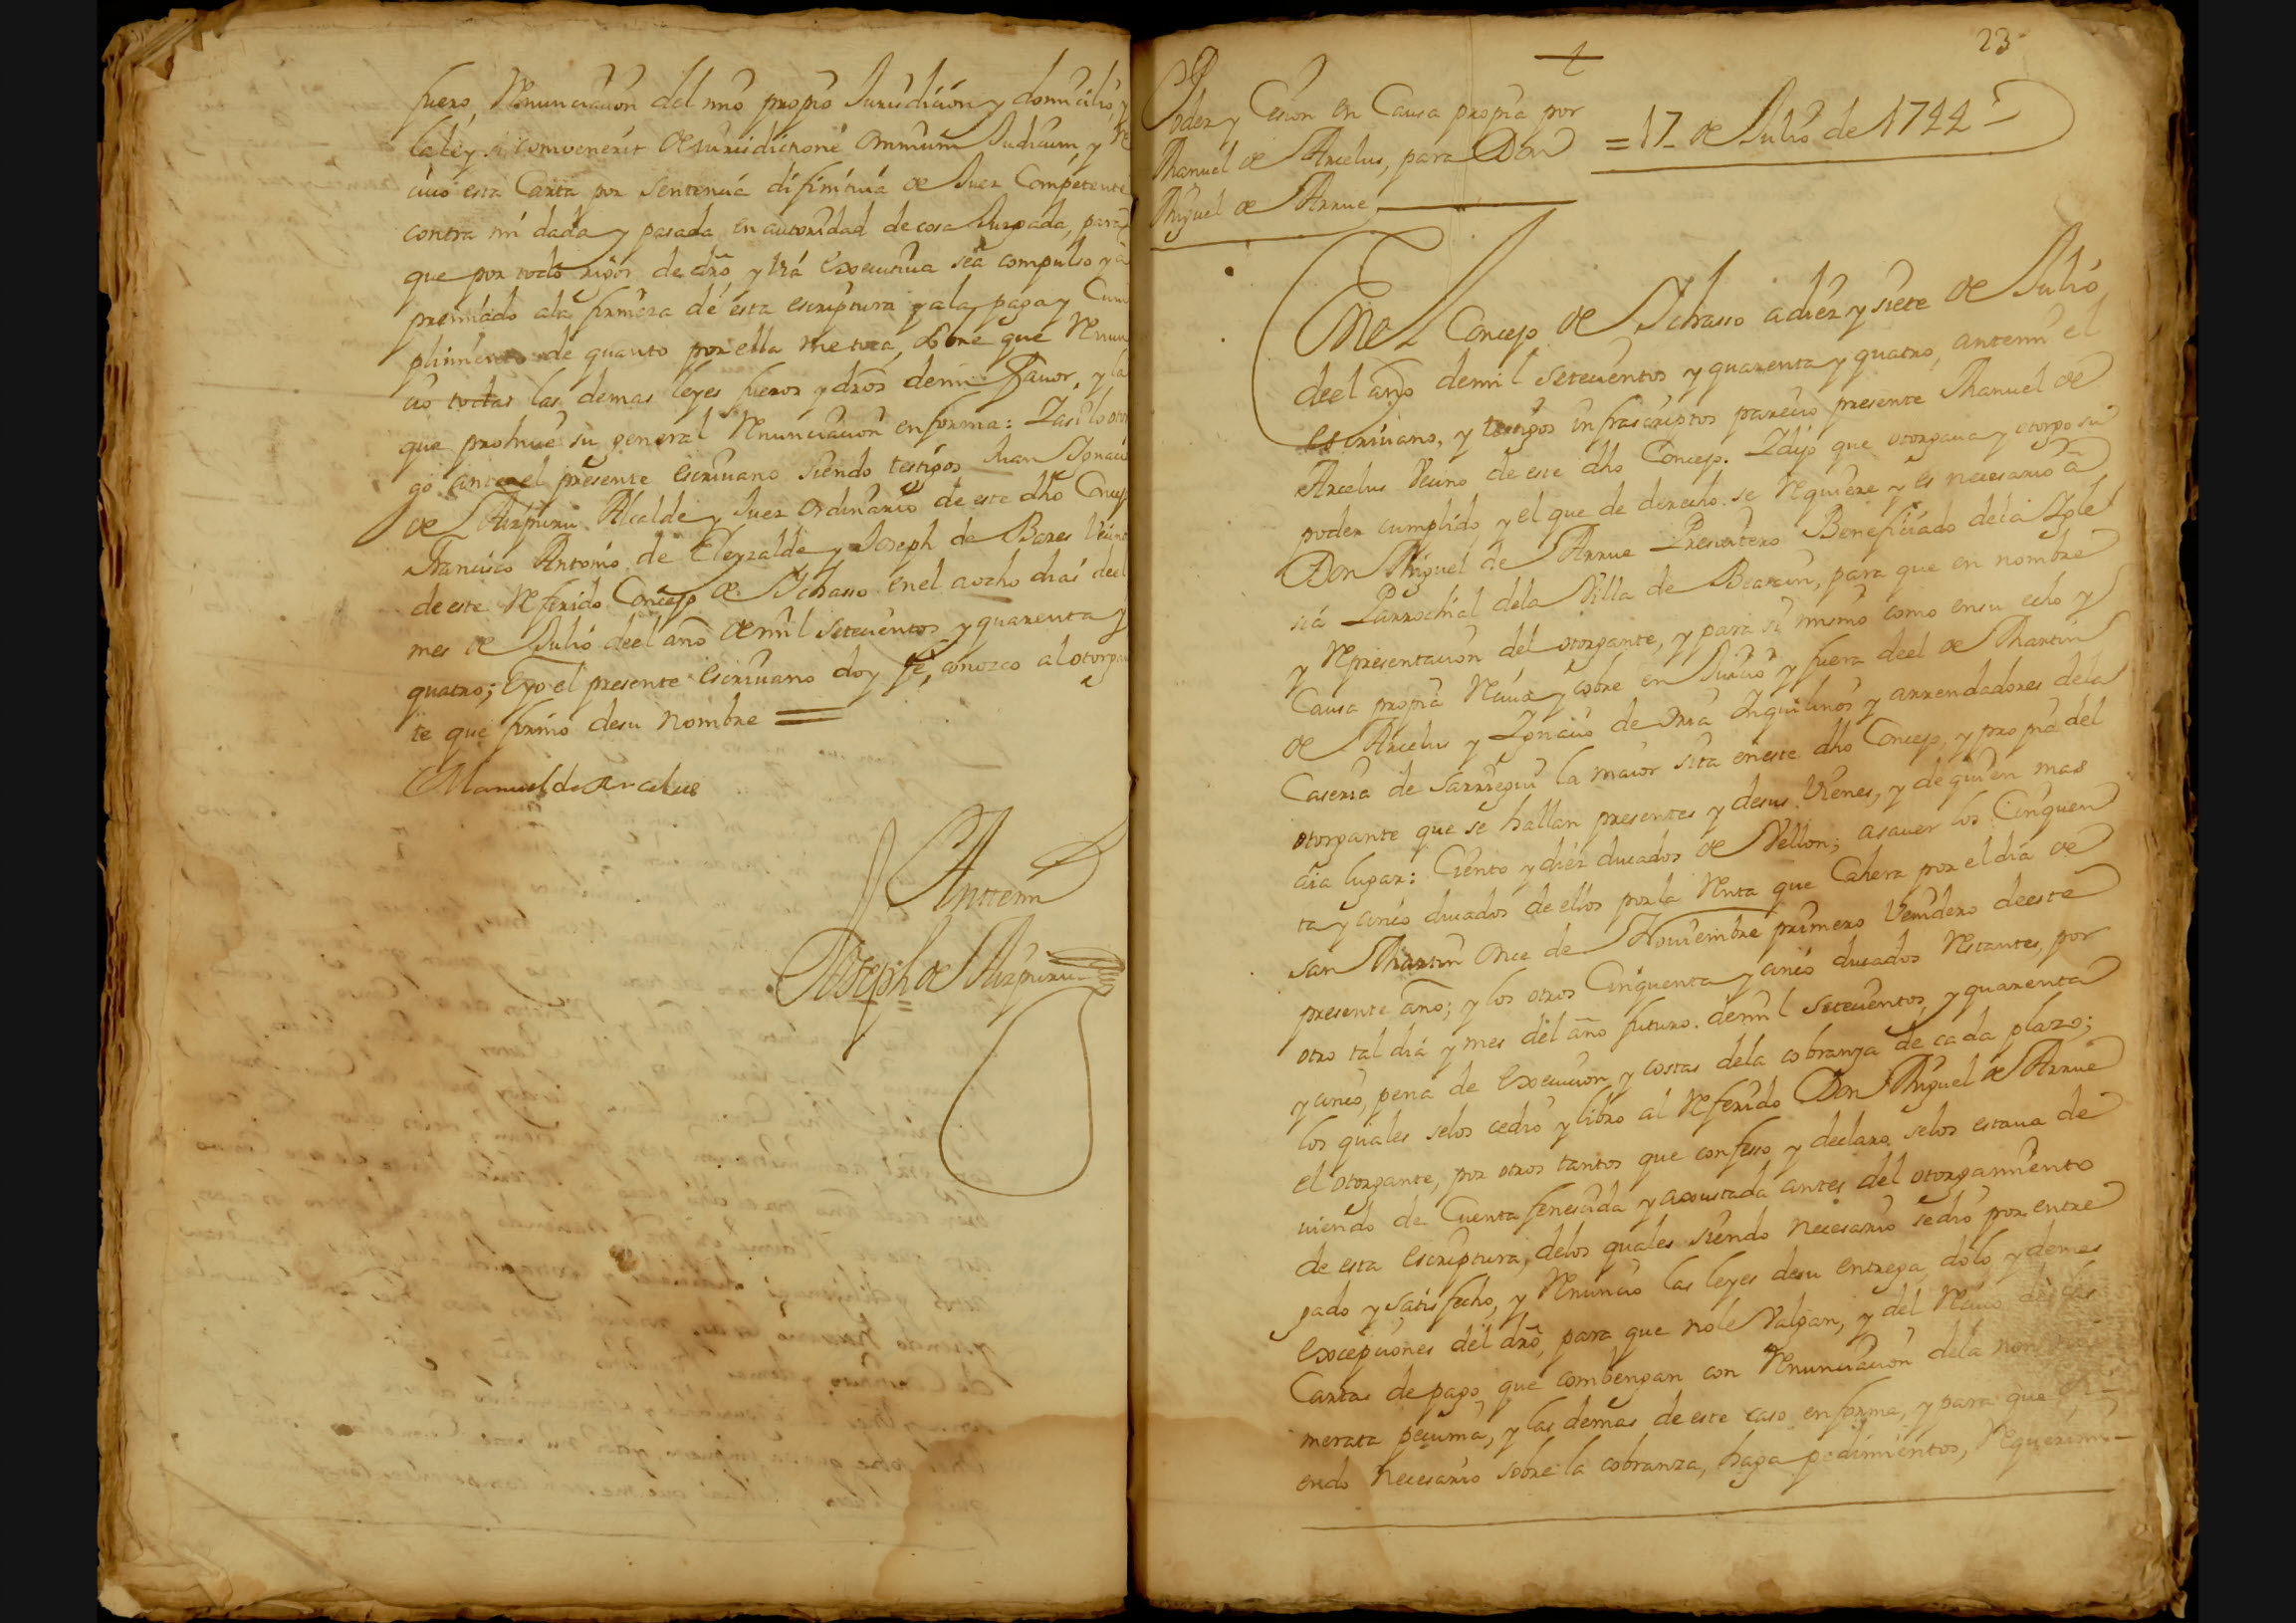 fuero, Renunciacion del mio propio Jurisdicion y domicilio, y
la ley si convenerit de Jurisdictione omnium Judicum, y Re
civo esta Carta por Sentencia difinitiva de Juez Competente
contra mi dada y pasada en autoridad de cosa Juzgada, para
que por todo rigor de dro, y via executiva sea compulso y a
premiado ala firmeza de esta escriptura y ala paga y Cum
plimiento de quanto por ella me toca, sobre que Renun
cio todas las demas leyes fueros y dros de mi favor, y la
que prohive su general Renunciacion en forma: Y asi lo otor
go ante el presente escrivano siendo testigos Juan Ignacio
de Aizpuru Alcalde y Juez Ordinario de este dho Concejo
Francisco Antonio de Eleyzalde y Joseph de Bares Vecinos
de este Referido Concejo de Ichasso en el a ocho dias deel
mes de Julio deel año de mil Setecientos y quarenta y
quatro; E yo el presente escrivano doy fe, conozco al otorgan
te que firmó de su nombre =
Manuel de Arcelus
Antemi
Joseph de Aizpuru
23
Poder y Cesion en Causa propia por
Manuel de Arcelus, para Don
Miguel de Arrue
= 17 de Julio de 1744
En el Concejo de Ichasso a diez y siete de Julio
deel año de mil Setecientos y quarenta y quatro, antemi el
escrivano, y testigos infrascriptos parecio presente Manuel de
Arcelus Vecino de este dho Concejo. Y dijo que otorgava y otorgo su
poder cumplido, y el que de derecho se Requiere y es necesario a
Don Miguel de Arrue Presvitero Beneficiado dela Ygle
sia Parrochial dela Villa de Beasain, para que en nombre
y Representacion del otorgante, y para si mismo como en su echo y
Causa propia Reciva y cobre en Juicio y fuera deel de Martin
de Arcelus y Ignacio de Oria Inquilinos y arrendadores dela
Caseria de Sarregui la maior sita en este dho Concejo, y propia del
otorgante que se hallan presentes y de sus Vienes, y de quien mas
aia lugar: Ciento y diez ducados de Vellon; asaver los Cinquen
ta y cinco ducados de ellos por la Renta que Cahera por el dia de
San Martin Once de Noviembre primero Venidero de este
presente año; y los otros Cinquenta y cinco ducados Restantes, por
otro tal dia y mes del año futuro de mil Setecientos, y quarenta
y cinco, pena de Execucion y costas dela cobranza de cada plazo;
los quales selos cedio y libro al Referido Don Miguel de Arrue
el otorgante, por otros tantos que confesso y declaro selos estava de
viendo de Cuenta fenescida y axustada antes del otorgamiento
de esta escriptura, delos quales siendo necesario se dio por entre
gado y satisfecho, y Renuncio las leyes de su entrega, dolo y demas
excepciones del dro, para que no le Valgan, y del Recivo de las
Cartas de pago, que combengan con Renunciacion dela non
merata pecunia, y las demas de este caso en forma, y para que
endo necesario sobre la cobranza, haga pedimientos, Requerimi